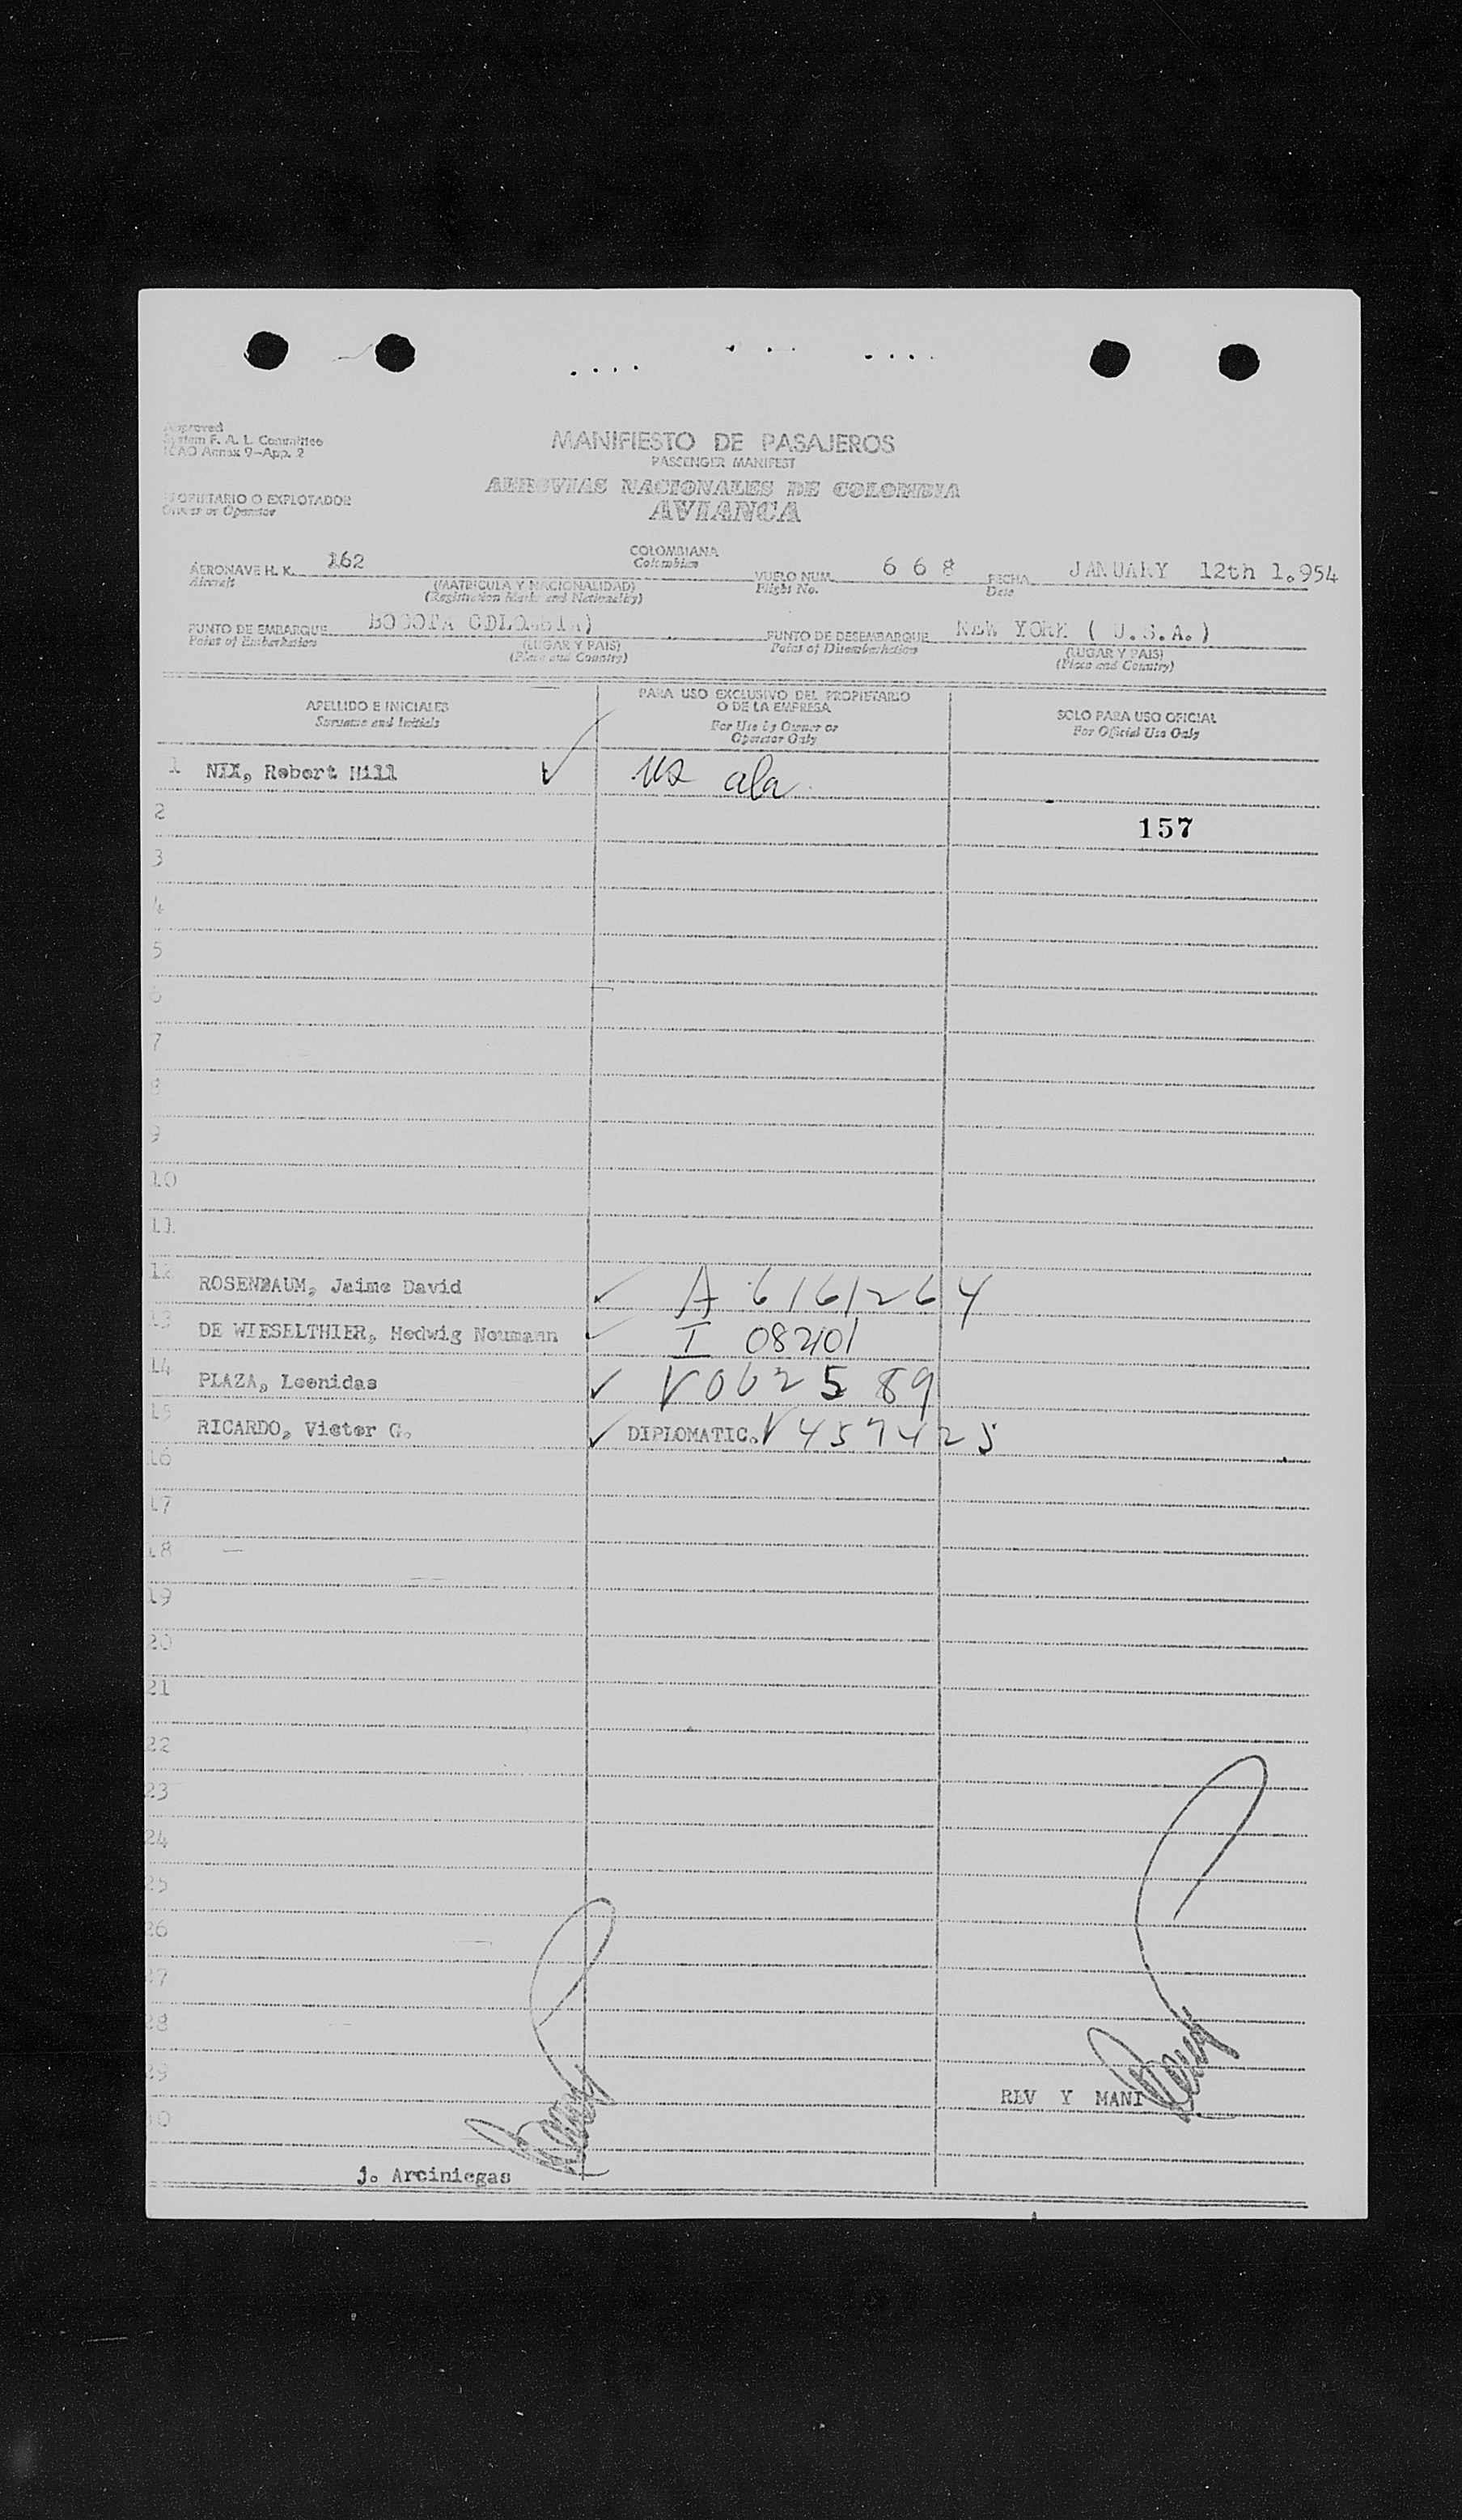 Approved
System F. A. L. Committee
ICAO Annex 9-App. 2
MANIFIESTO DE PASAJEROS
PASSENGER MANIFEST
AEROVIAS NACIONALES DE COLOMBIA
AVIANCA
PROPIETARIO O EXPLOTADOR
Owner or Operator
AERONAVE H. K. 162 COLOMBIANA VUELO NUM. 6 6 8 FECHA JANUARY 12th 1.954
Aircraft Colombian Flight No. Date
(MATRICULA Y NACIONALIDAD)
(Registration Marks and Nationality)
PUNTO DE EMBARQUE BOGOTA COLOMBIA) PUNTO DE DESEMBARQUE NEW YORK ( U.S.A.)
Point of Embarkation (LUGAR Y PAIS) Point of Disembarkation (LUGAR Y PAIS)
(Place and Country) (Place and Country)
APELLIDO E INICIALES
Surname and Initials
PARA USO EXCLUSIVO DEL PROPIETARIO
O DE LA EMPRESA
For Use by Owner or
Operator Only
SOLO PARA USO OFICIAL
For Official Use Only
1 NIX, Robert Hill ✓ us ala
2 157
3
4
5
6
7
8
9
10
11
12 ROSENBAUM, Jaime David ✓ A 6161264
13 DE WIESELTHIER, Hedwig Neumann ✓ I
14 PLAZA, Leonidas ✓ V 062589
15 RICARDO, Victor G. ✓ DIPLOMATIC. V 457425
16
17
18
19
20
21
22
23
24
25
26
27
28
29
REV Y MANI
j. Arciniegas